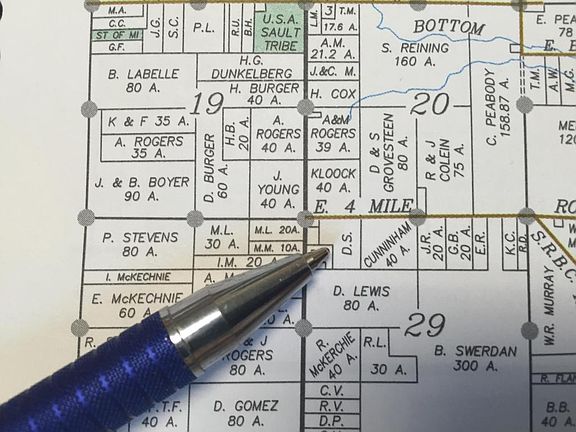 M.A.
C.C.
ST OF MI
G.F.
J.G.
S.C.
P.L.
R.U.
B.H.
U.S.A.
SAULT
TRIBE
L.M.
3
T.M.
17.6 A.
A.M.
21.2 A.
J.&C. M.
H. COX
BOTTOM
S. REINING
160 A.
E. PEA
78
E. B
T.M.
A.W.
M.G.
B. LABELLE
80 A.
H.G.
DUNKELBERG
H. BURGER
40 A.
19
20
C. PEABODY
158.87 A.
K & F 35 A.
A. ROGERS
35 A.
D. BURGER
60 A.
H.B.
20 A.
A.
ROGERS
40 A.
A&M
ROGERS
39 A.
D & S
GROVESTEEN
80 A.
R & J
COLEIN
75 A.
ME
120
J. & B. BOYER
90 A.
J.
YOUNG
40 A.
KLOOCK
40 A.
E. 4 MILE
RO
P. STEVENS
80 A.
M.L.
30 A.
M.L. 20A.
M.M. 10A.
I.M. 20
D.S.
CUNNINHAM
40 A.
J.R.
20 A.
G.B.
20 A.
E.R.
K.C.
R.D.
S.R.B.C.
W.R. MURRAY
I. McKECHNIE
E. McKECHNIE
60 A.
A. M
D. LEWIS
80 A.
29
R.
J
ROGERS
80 A.
R.
McKERCHIE
40 A.
R.L.
30 A.
B. SWERDAN
300 A.
R. FLAN
T.F.
40 A.
D. GOMEZ
80 A.
C.V.
R.V.
D.P.
B.B.
40 A.